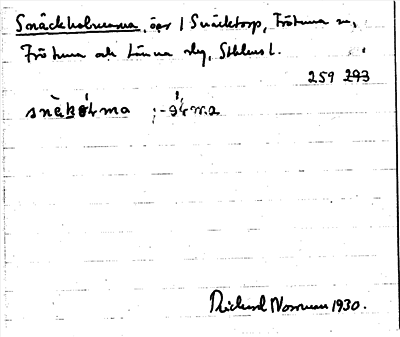 Snäckholmarna, öar i Snäcktorp, Frötuna sn,
Frötuna och Länna skg, Sthlms l.
259 293
snèkó̜lma ; -ǻlma
Rickard Norman 1930.